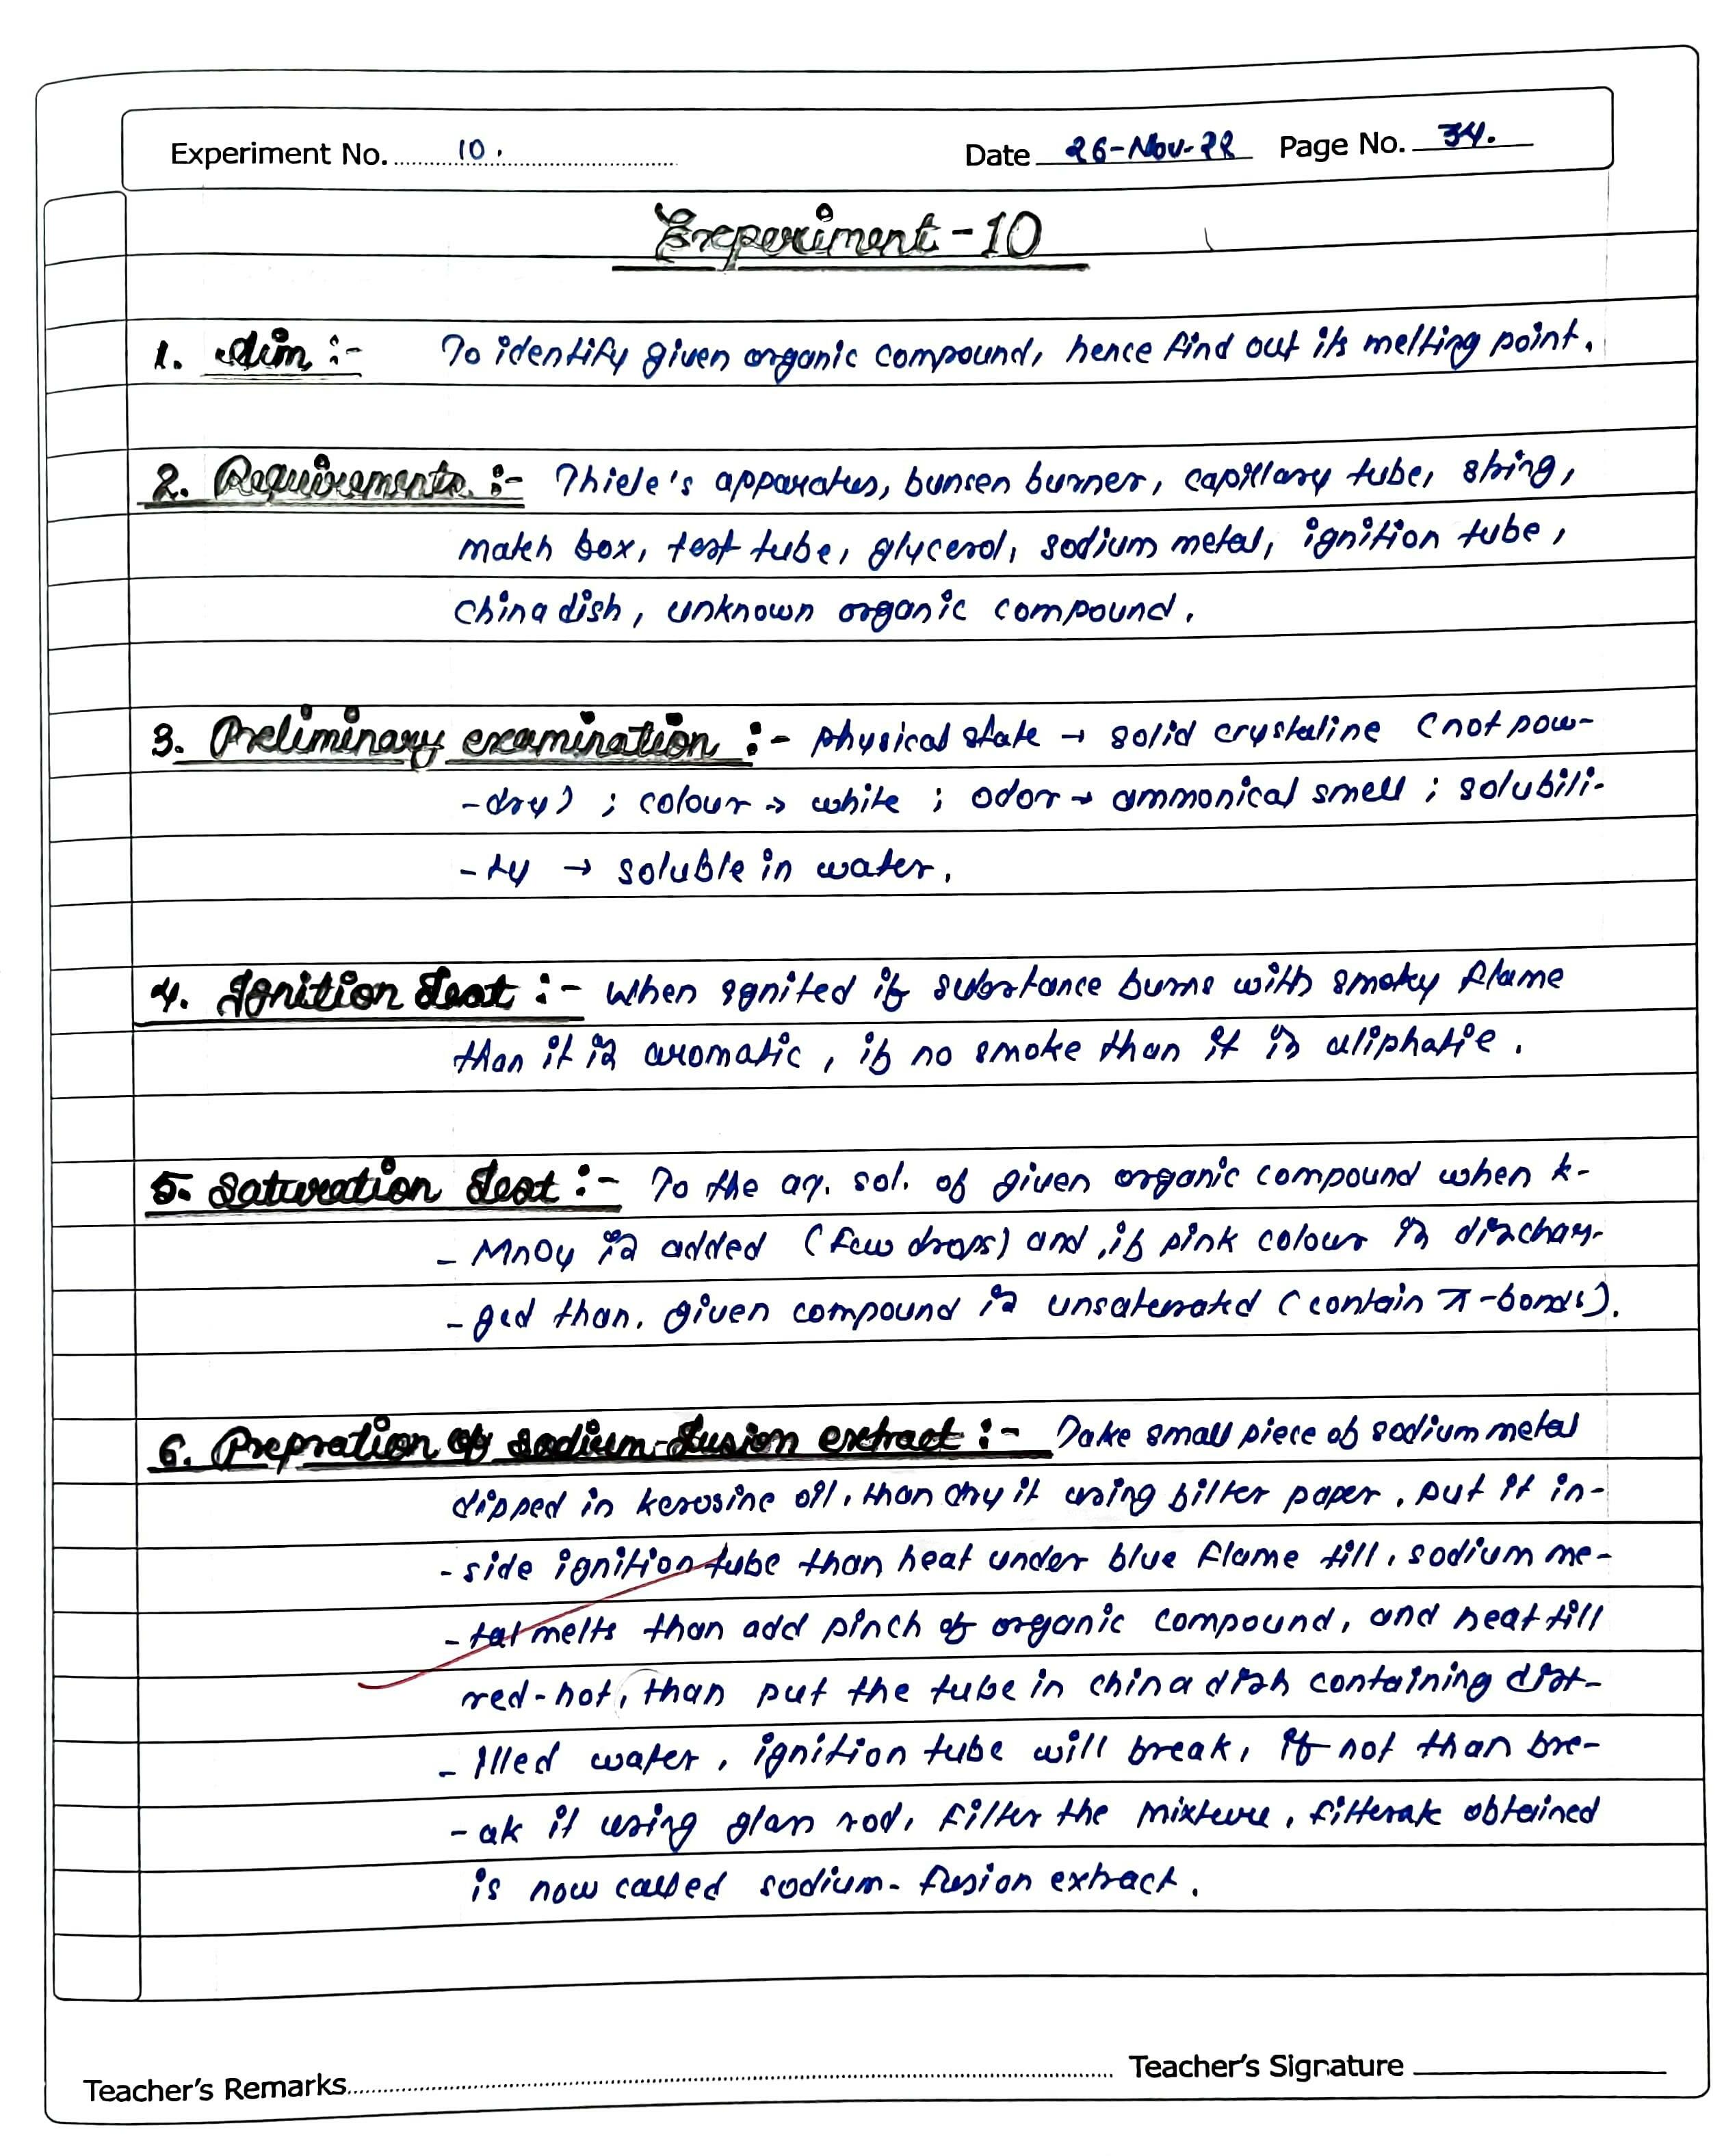 Experiment No. 10. Date 26-Nov-22 Page No. 34.
Experiment-10
1. Aim :- To identify given organic compound, hence find out its melting point.
2. Requirements :- Thiele's apparatus, bunsen burner, capillary tube, string,
match box, test tube, glycerol, sodium metal, ignition tube,
china dish, unknown organic compound.
3. Preliminary examination :- physical state → solid crystaline (not pow-
-dry) ; colour → white ; odor → ammonical smell ; solubili-
-ty → soluble in water.
4. Ignition Test :- when ignited if substance burns with smoky flame
than it is aromatic, if no smoke than it is aliphatic.
5. Saturation Test :- To the aq. sol. of given organic compound when k-
- MnO4 is added (few drops) and, if pink colour is dischar-
- ged than, given compound is unsaterated (contain π-bonds).
6. Prepration of sodium-fusion extract :- Take small piece of sodium metal
dipped in kerosine oil, than dry it using filter paper, put it in-
- side ignition tube than heat under blue flame till, sodium me-
- tal melts than add pinch of organic compound, and heat till
red-hot, than put the tube in china dish containing dist-
- illed water, ignition tube will break, if not than bre-
- ak it using glass rod, filter the mixture, filterate obtained
is now called sodium-fusion extract.
Teacher's Remarks Teacher's Signature